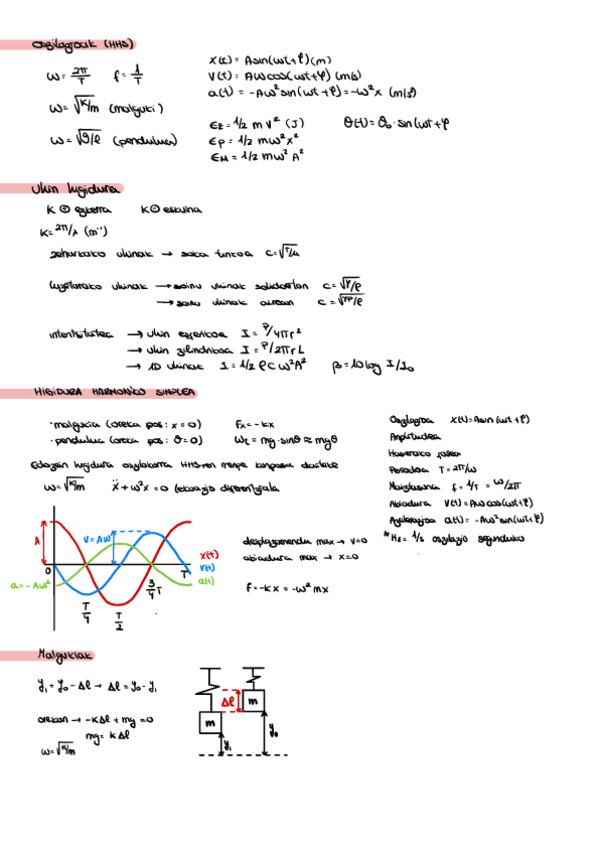 Oszilagroak (HHS)
ω = 2π/T f = 1/T
x(t) = A sin(ωt + φ) (m)
v(t) = Aω cos(ωt + φ) (m/s)
a(t) = -Aω² sin(ωt + φ) = -ω²x (m/s²)
ω = √K/m (malguki)
ω = √g/ℓ (pendulua)
Ez = 1/2 m v² (J) θ(t) = θ₀ · sin(ωt + φ
Ep = 1/2 mω²x²
EM = 1/2 mω² A²
Uhin higidura
K ⊕ ezkerra K ⊖ eskuina
K = 2π/λ (m⁻¹)
zeharkako uhinak → soka tinkoa c = √T/μ
luzetarako uhinak → soinu uhinak solidoetan c = √Y/ρ
→ soinu uhinak airean c = √γP/ρ
intentsitatea → uhin esferikoa I = P/4πr²
→ uhin zilindrikoa I = P/2πrL
→ 1D uhinak I = 1/2 ρ c ω² A² β = 10 log I/I₀
HIGIDURA HARMONIKO SIMPLEA
· malgukia (oreka pos: x = 0) Fx = -kx
· pendulua (oreka pos: θ = 0) Wt = mg · sinθ ≈ mgθ
Edozein higidura oszilakorra HHS-ren menpe konposa daiteke
ω = √K/m ẍ + ω²x = 0 (ekuazio diferentziala
Oszilagroa x(t) = A sin (ωt + φ)
Anplitudea
Hasierako fasea
Periodoa T = 2π/ω
Maiztasuna f = 1/T = ω/2π
Abiadura v(t) = Aω cos(ωt + φ)
Azelerazioa a(t) = -Aω² sin(ωt + φ)
* Hz = 1/s oszilazio segunduko
A
v = Aω
x(t)
v(t)
a(t)
0
T
a = -Aω²
T/4
T/2
3/4 T
desplazamendu max → v = 0
abiadura max → x = 0
F = -kx = -ω² mx
Malgukiak
y₁ = y₀ - Δℓ → Δℓ = y₀ - y₁
orekan → -KΔℓ + mg = 0
mg = KΔℓ
ω = √K/m
Δℓ
m
m
y₁
y₀